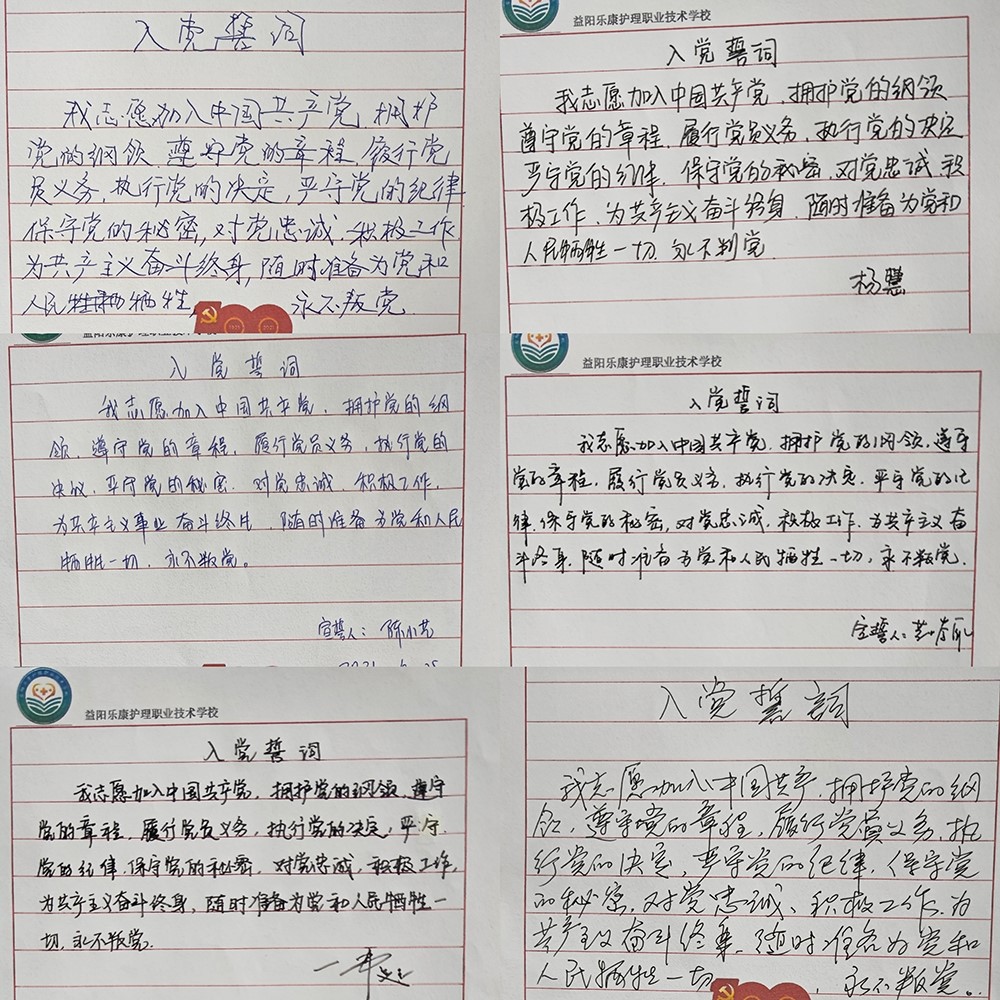 入党誓词
我志愿加入中国共产党,拥护
党的纲领,遵守党的章程,履行党
员义务,执行党的决定,严守党的纪律
保守党的秘密,对党忠诚,积极工作
为共产主义奋斗终身,随时准备为党和
人民牺牲 永不叛党.
益阳乐康护理职业技术学校
入党誓词
我志愿加入中国共产党,拥护党的纲领
遵守党的章程,履行党员义务,执行党的决定
严守党的纪律,保守党的秘密,对党忠诚,积
极工作,为共产主义奋斗终身,随时准备为党和
人民牺牲一切,永不判党
杨慧
入党誓词
我志愿加入中国共产党,拥护党的纲
领,遵守党的章程,履行党员义务,执行党的
决议,严守党的秘密,对党忠诚,积极工作,
为共产主义事业奋斗终生,随时准备为党和人民
牺牲一切,永不叛党。
宣誓人:陈小艺
益阳乐康护理职业技术学校
入党誓词
我志愿加入中国共产党,拥护党的纲领,遵守
党的章程,履行党员义务,执行党的决定,严守党的纪
律,保守党的秘密,对党忠诚,积极工作,为共产主义奋
斗终身,随时准备为党和人民牺牲一切,永不叛党.
宣誓人:
益阳乐康护理职业技术学校
入党誓词
我志愿加入中国共产党,拥护党的纲领,遵守
党的章程,履行党员义务,执行党的决定,严守
党的纪律,保守党的秘密,对党忠诚,积极工作,
为共产主义奋斗终身,随时准备为党和人民牺牲一
切,永不叛党.
入党誓词
我志愿加入中国共产,拥护党的纲
领,遵守党的章程,履行党員义务,执
行党的决定,严守党的纪律,保守党
的秘密,对党忠诚,积极工作,为
共产主义奋斗终身,随时准备为党和
人民牺牲一切 ,永不叛党。